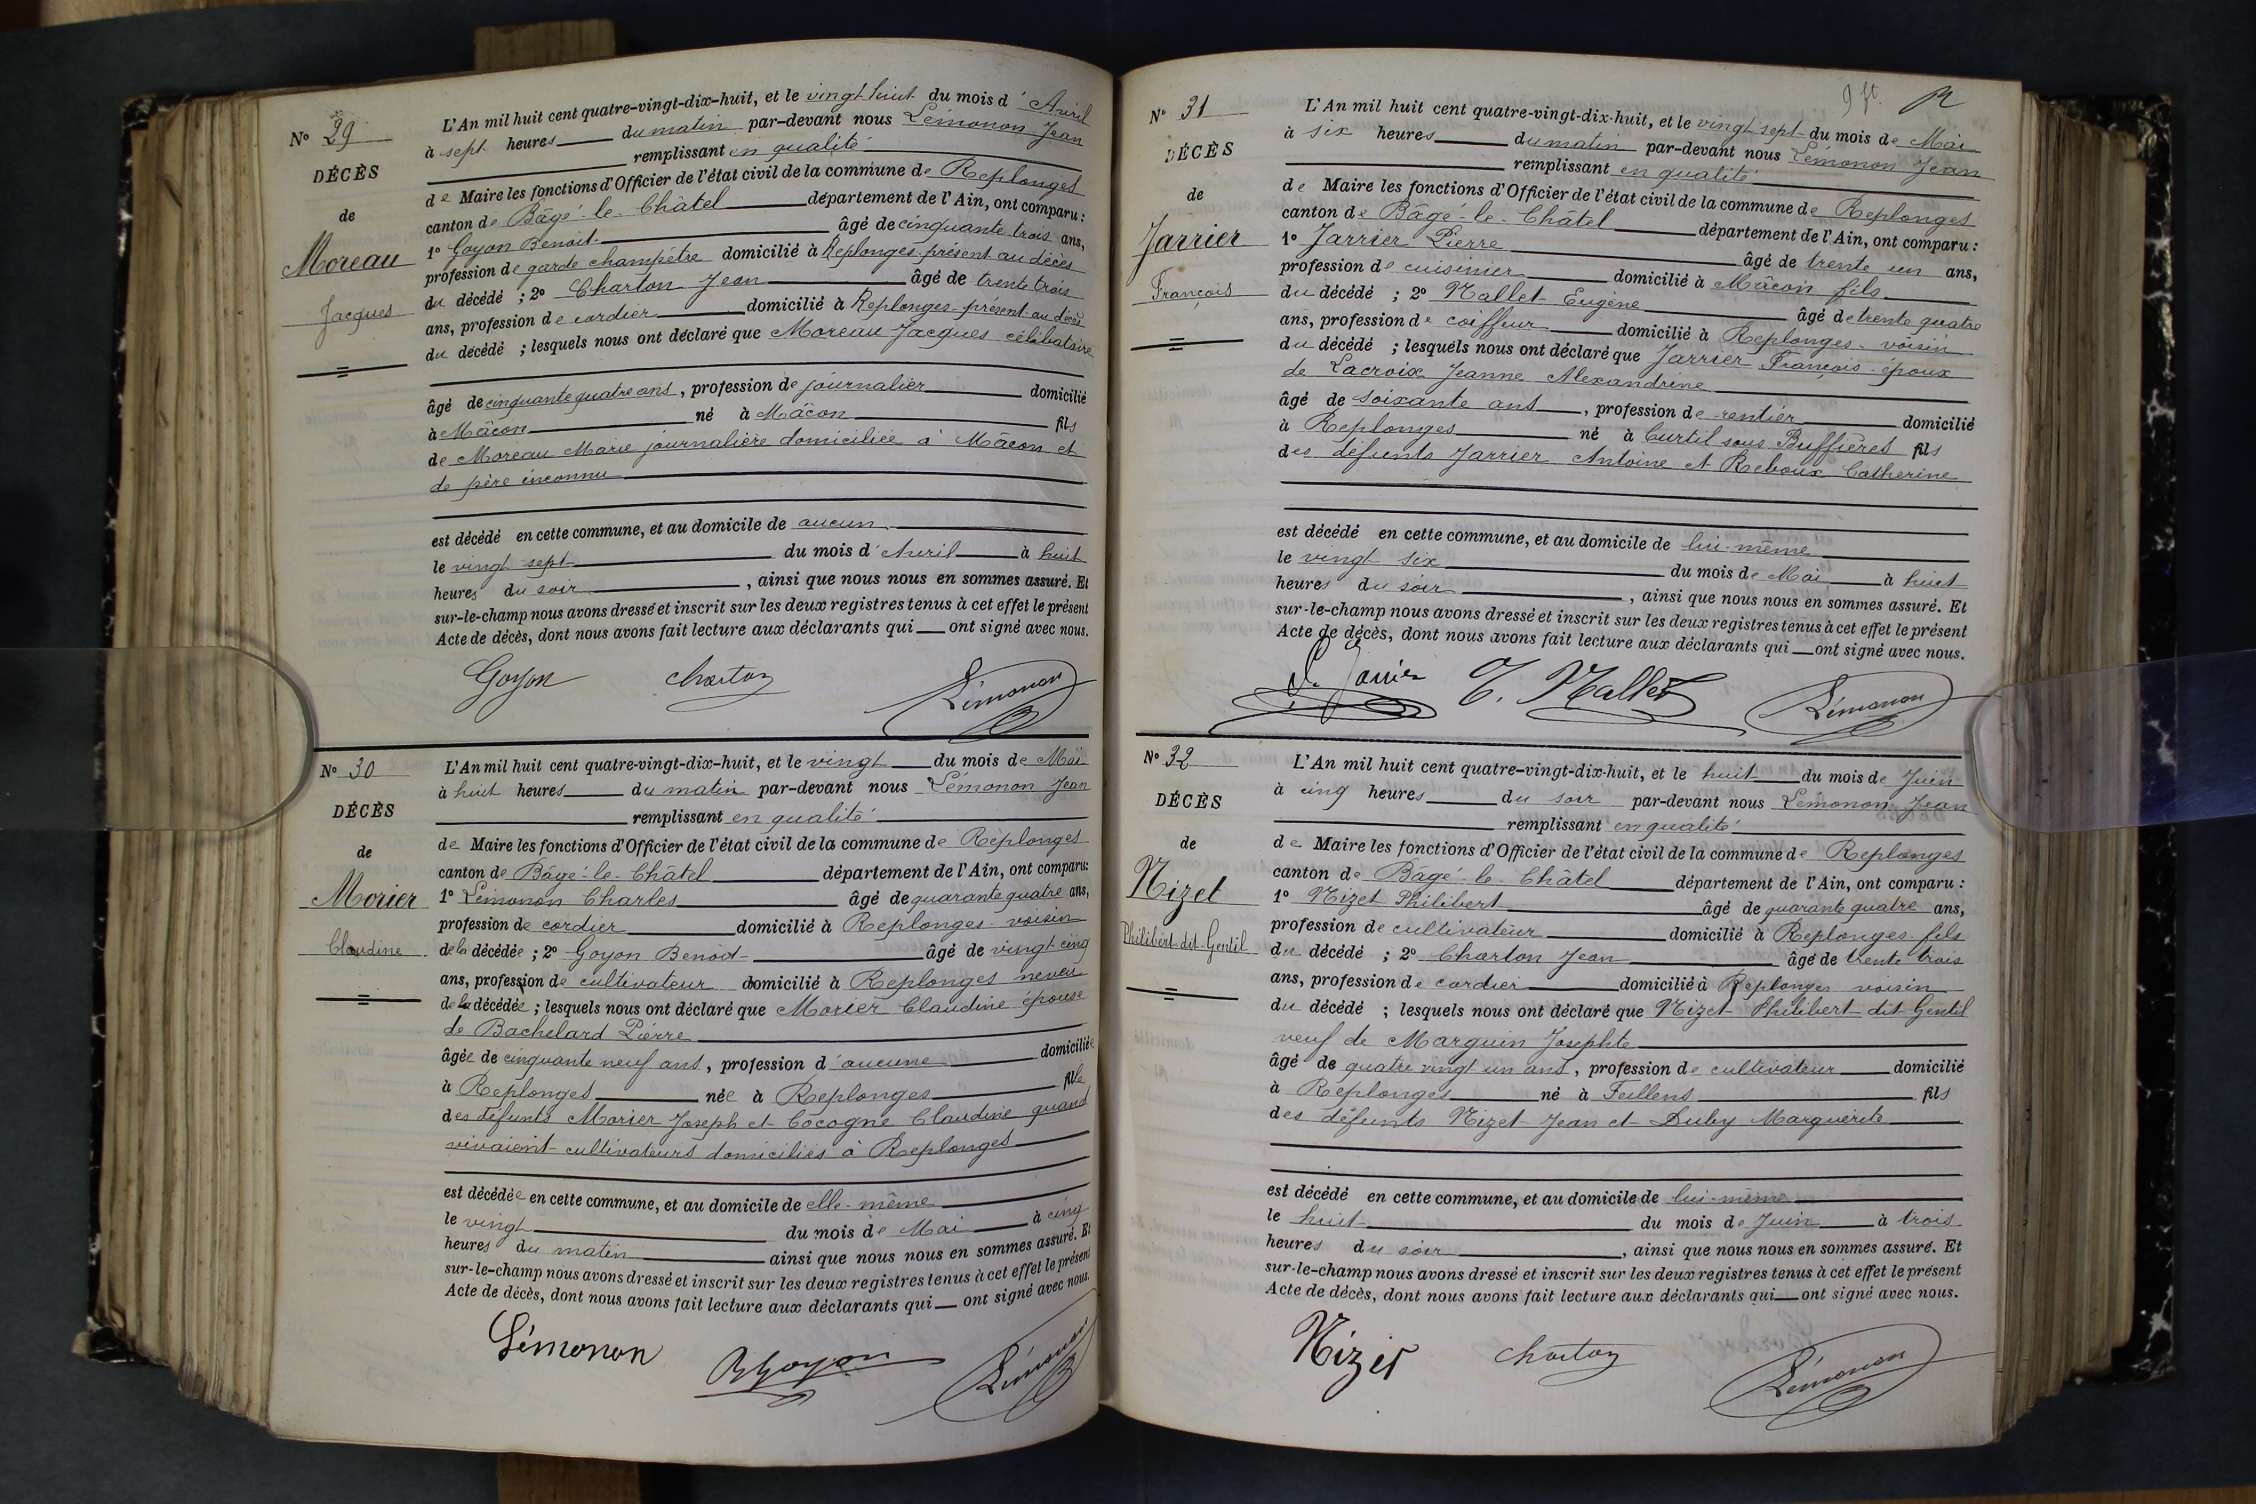 Nº 29
DÉCÈS
de
Moreau
Jacques
L'An mil huit cent quatre-vingt-dix-huit, et le vingt huit du mois d'Avril
à sept heures du matin par-devant nous Lémonon Jean
remplissant en qualité
de Maire les fonctions d'Officier de l'état civil de la commune de Replonges
canton de Bâgé-le-Châtel département de l'Ain, ont comparu :
1º Goyon Benoit âgé de cinquante trois ans,
profession de garde champêtre domicilié à Replonges présent au décès
du décédé ; 2º Charton Jean âgé de trente trois
ans, profession de cordier domicilié à Replonges présent au décès
du décédé ; lesquels nous ont déclaré que Moreau Jacques célibataire
âgé de cinquante quatre ans, profession de journalier domicilié
à Mâcon né à Mâcon fils
de Moreau Marie journalière domiciliée à Mâcon et
de père inconnu
est décédé en cette commune, et au domicile de aucun
le vingt sept du mois d'Avril à huit
heures du soir, ainsi que nous nous en sommes assuré. Et
sur-le-champ nous avons dressé et inscrit sur les deux registres tenus à cet effet le présent
Acte de décès, dont nous avons fait lecture aux déclarants qui ont signé avec nous.
Goyon Charton Lémonon
Nº 30
DÉCÈS
de
Morier
Claudine
L'An mil huit cent quatre-vingt-dix-huit, et le vingt du mois de Mai
à huit heures du matin par-devant nous Lémonon Jean
remplissant en qualité
de Maire les fonctions d'Officier de l'état civil de la commune de Replonges
canton de Bâgé-le-Châtel département de l'Ain, ont comparu:
1º Lémonon Charles âgé de quarante quatre ans,
profession de cordier domicilié à Replonges voisin
de la décédée ; 2º Goyon Benoit âgé de vingt cinq
ans, profession de cultivateur domicilié à Replonges neveu
de la décédée ; lesquels nous ont déclaré que Morier Claudine épouse
de Bachelard Pierre
âgée de cinquante neuf ans, profession d'aucune domiciliée
à Replonges née à Replonges fille
des défunts Morier Joseph et Cocogne Claudine quand
vivaient cultivateurs domiciliés à Replonges
est décédée en cette commune, et au domicile de elle-même
le vingt du mois de Mai à cinq
heures du matin ainsi que nous nous en sommes assuré. Et
sur-le-champ nous avons dressé et inscrit sur les deux registres tenus à cet effet le présent
Acte de décès, dont nous avons fait lecture aux déclarants qui ont signé avec nous.
Lémonon BGoyon Lémonon
Nº 31
DÉCÈS
de
Jarrier
François
L'An mil huit cent quatre-vingt-dix-huit, et le vingt sept du mois de Mai
à six heures du matin par-devant nous Lémonon Jean
remplissant en qualité
de Maire les fonctions d'Officier de l'état civil de la commune de Replonges
canton de Bâgé-le-Châtel département de l'Ain, ont comparu :
1º Jarrier Pierre âgé de trente un ans,
profession de cuisinier domicilié à Mâcon fils
du décédé ; 2º Mallet Eugène âgé de trente quatre
ans, profession de coiffeur domicilié à Replonges voisin
du décédé ; lesquels nous ont déclaré que Jarrier François époux
de Lacroix Jeanne Alexandrine
âgé de soixante ans, profession de rentier domicilié
à Replonges né à Curtil sous Buffières fils
des défunts Jarrier Antoine et Reboux Catherine
est décédé en cette commune, et au domicile de lui-même
le vingt six du mois de Mai à huit
heures du soir, ainsi que nous nous en sommes assuré. Et
sur-le-champ nous avons dressé et inscrit sur les deux registres tenus à cet effet le présent
Acte de décès, dont nous avons fait lecture aux déclarants qui ont signé avec nous.
Mallet Lémonon
Nº 32
DÉCÈS
de
Nizet
Philibert-dit-Gentil
L'An mil huit cent quatre-vingt-dix-huit, et le huit du mois de Juin
à cinq heures du soir par-devant nous Lémonon Jean
remplissant en qualité
de Maire les fonctions d'Officier de l'état civil de la commune de Replonges
canton de Bâgé-le-Châtel département de l'Ain, ont comparu :
1º Nizet Philibert âgé de quarante quatre ans,
profession de cultivateur domicilié à Replonges fils
du décédé ; 2º Charton Jean âgé de trente trois
ans, profession de cordier domicilié à Replonges voisin
du décédé ; lesquels nous ont déclaré que Nizet Philibert dit Gentil
veuf de Marguin Josephte
âgé de quatre vingt un ans, profession de cultivateur domicilié
à Replonges né à Feillens fils
des défunts Nizet Jean et Duby Marguerite
est décédé en cette commune, et au domicile de lui-même
le huit du mois de Juin à trois
heures du soir, ainsi que nous nous en sommes assuré. Et
sur-le-champ nous avons dressé et inscrit sur les deux registres tenus à cet effet le présent
Acte de décès, dont nous avons fait lecture aux déclarants qui ont signé avec nous.
Nizet Charton Lémonon